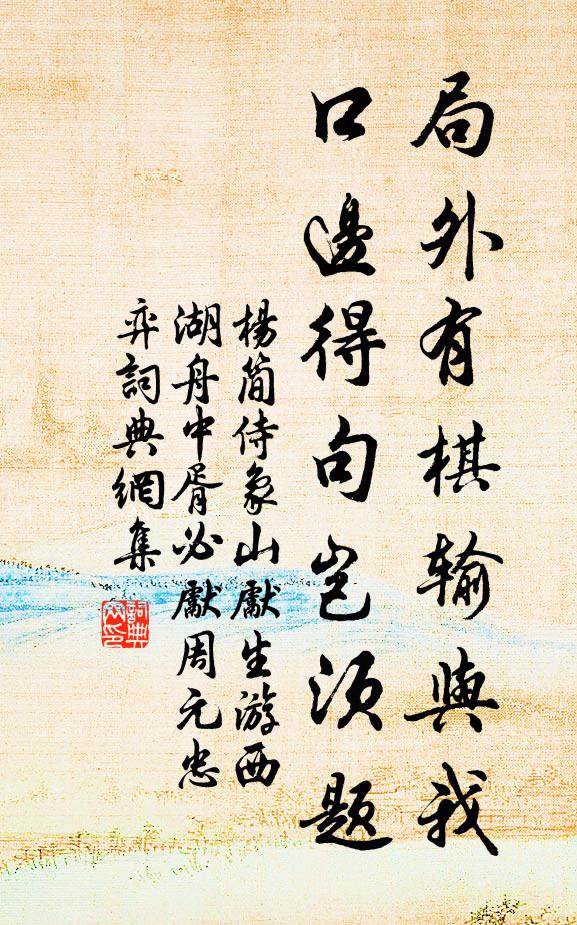 局外有棋输與我
口邊得句岂须題
楊简侍象山獻生游西
湖舟中胥必獻周元忠
弈詞典網集
詞典网印